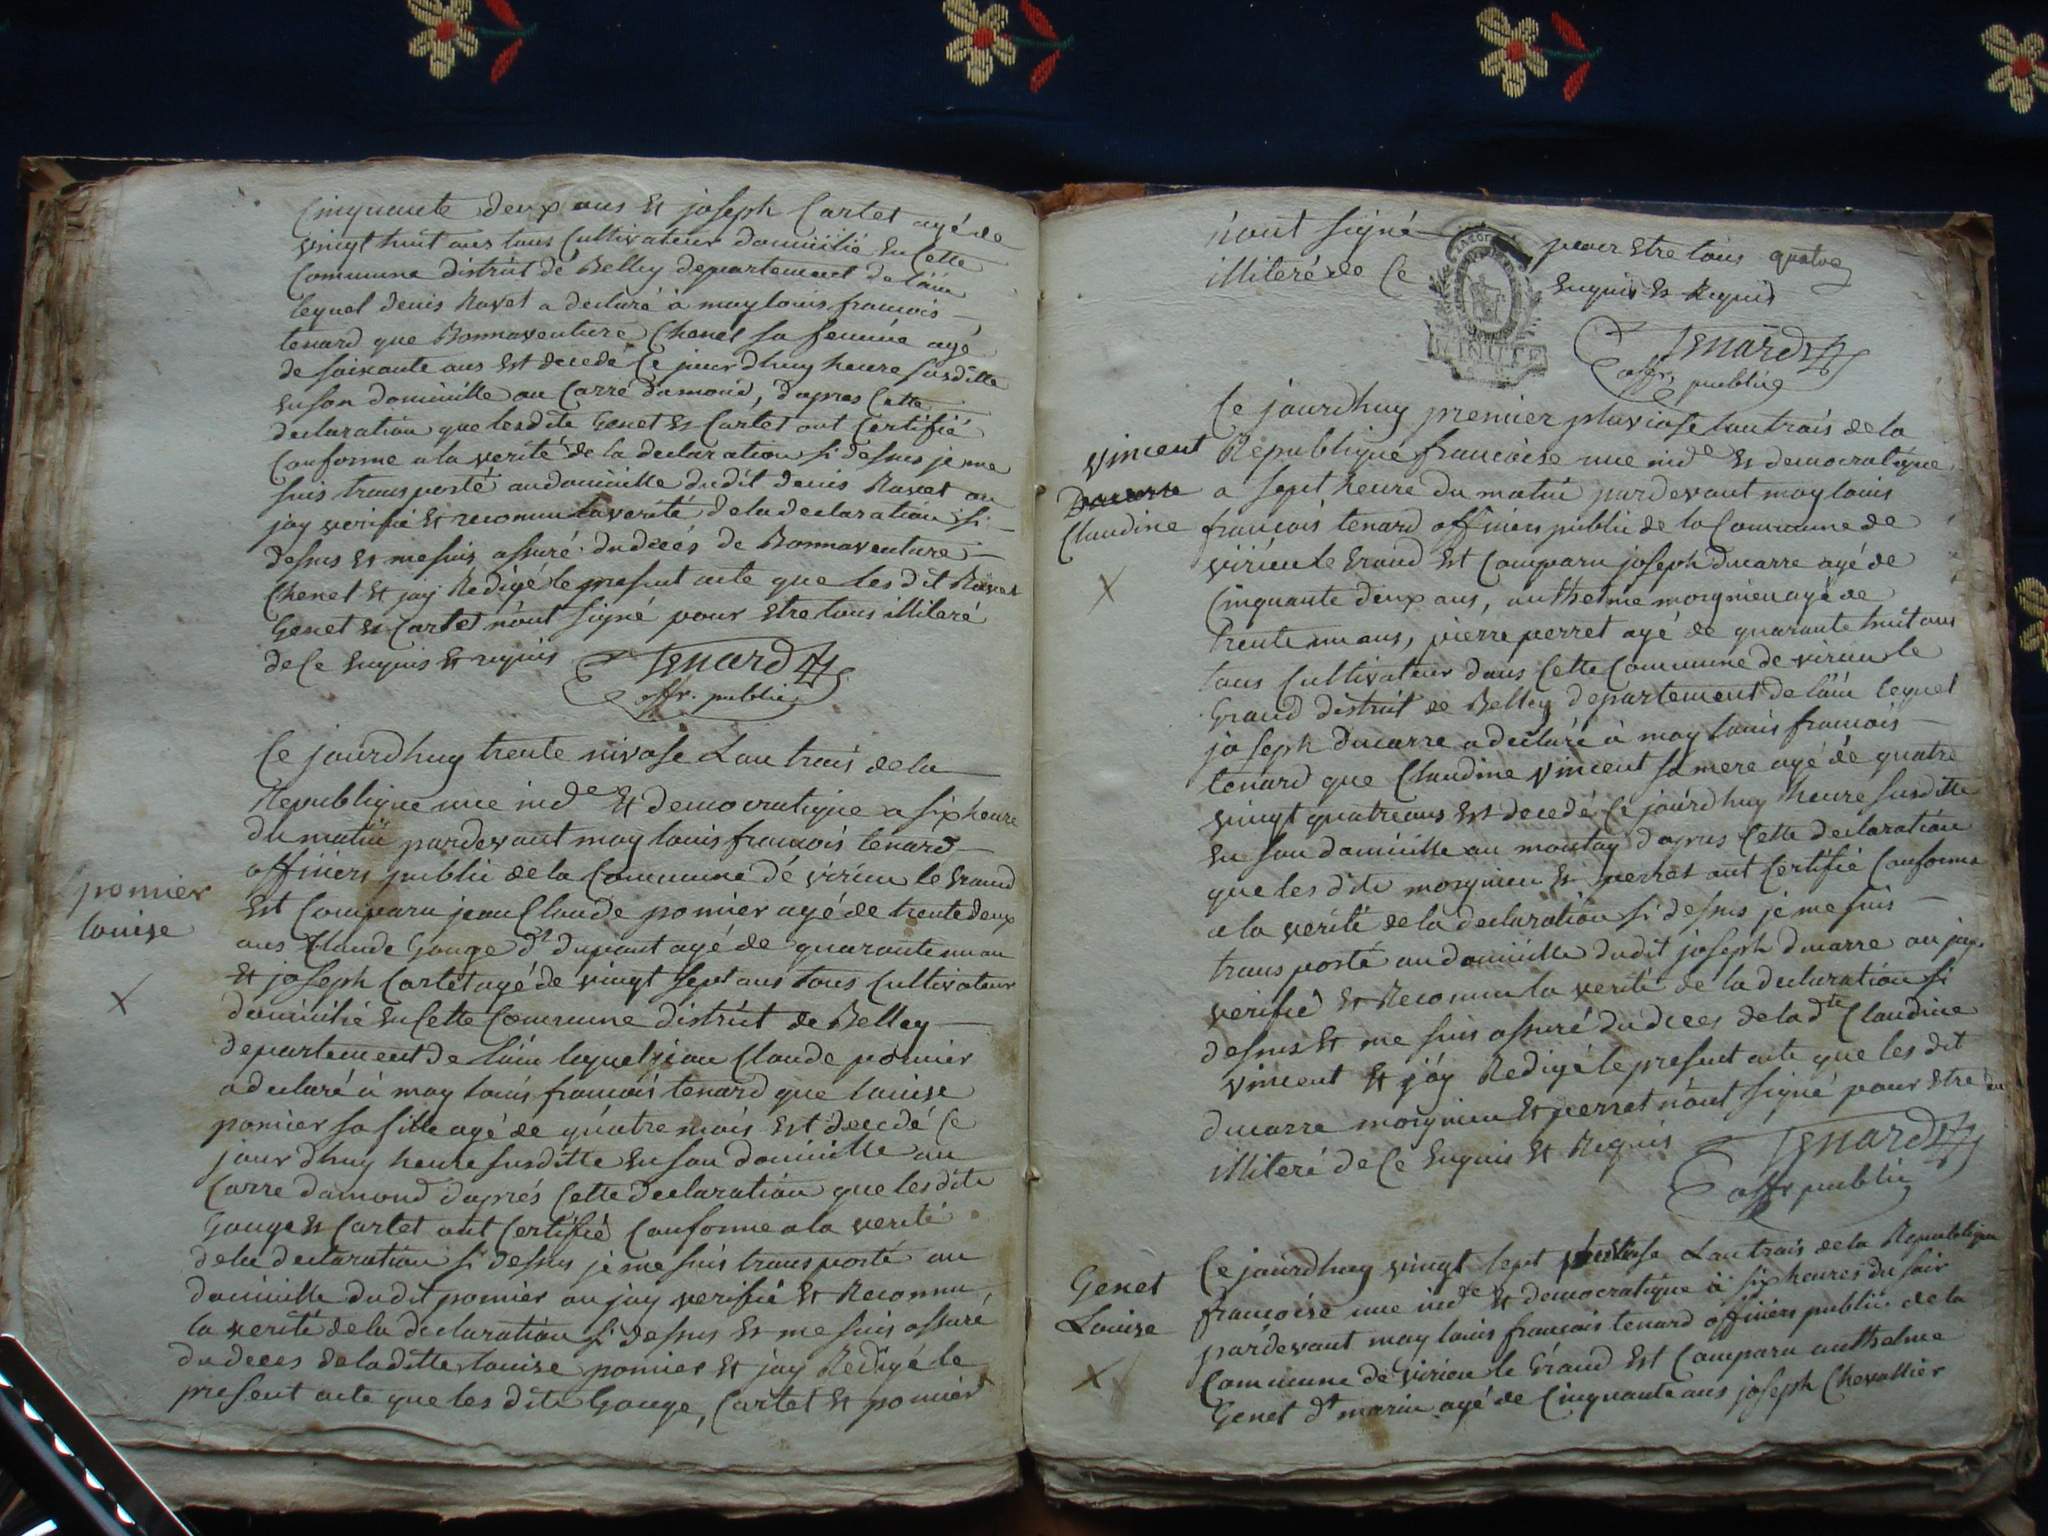 Cinquante deux ans et joseph Cartet agé de
vingt huit ans tous Cultivateur domicilié en Cette
Commune distrit de Belley departement de lain
lequel denis Ravet a declaré a moy louis francois
tenard que Bonnaventure Chenet sa femme agé
de soixante ans est decedé Ce jourdhuy heure susditte
en son domicille au Carré damond, dapres Cette
declaration que lesdits Genet et Cartet ont Certifié
Conforme a la verité de la declaration si dessus je me
suis transporté au domicille dudit denis Ravet ou
jay verifié et reconnu la verité de la declaration si
dessus et me suis assuré du dèces de Bonnaventure
Chenet et jay Redigé le present acte que les dit Ravet
Genet et Cartet n'ont signé pour estre tous illiteré
de Ce enquis et requis
Tenard
offr. public
Ce jourdhuy trente nivose Lan trois de la
Republique une inde et democratique a six heure
du matin pardevant moy louis francois tenard
officiers public de la Commune dé virieu le Grand
Est Comparu jean Claude pomier agé de trente deux
ans Claude Gouge dt dupont agé de quarante un an
et joseph Cartet agé de vingt sept ans tous Cultivateur
domicilié en Cette Commune distrit de Belley
departement de lain lequel jean Claude pomier
a declaré à moy louis francois tenard que louise
pomier sa fille agé de quatre mois est decedé Ce
jourdhuy heure susditte en son domicille au
Carre damond daprés Cette declaration que les dits
Gouge et Cartet ont Certifié Conforme a la verité
de la declaration si dessus je me suis transporté au
domicille dudit pomier ou jay verifié et Reconnu
la verité de la declaration si dessus et me suis assuré
du deces de laditte louise pomier et jay Redigé le
present acte que les dits Gouge, Cartet et pomier
pomier
louise
n'ont signé pour estre tous quatre
illiteré de Ce enquis et Requis
MINUTE
Tenard
offr. public
Ce jourdhuy premier pluviose lan trois de la
Republique francoise une inde et democratique
a sept heure du matin pardevant moy louis
francois tenard officiers public de la Commune de
virieu le Grand est Comparu joseph ducarre agé de
Cinquante deux ans, anthelme morgnieu agé de
trente un ans, pierre perret agé de quarante huit ans
tous Cultivateur dans Cette Commune de virieu le
Grand distrit de Belley departement de lain lequel
joseph ducarre a declaré à moy louis francois
tenard que Claudine vincent sa mere agé de quatre
vingt quatre ans est decedé Ce jourdhuy heure susditte
en son domicille au dapres Cette declaration
que les dits morgnieu et perret ont Certifié Conforme
a la verité de la declaration si dessus je me suis
transporté au domicille dudit joseph ducarre ou jay
verifié et Reconnu la verité de la declaration si
dessus et me suis assuré du deces de la dte Claudine
vincent et jáy Redigé le present acte que les dit
ducarre morgnieu et perret n'ont signé pour estre
illiteré de Ce enquis et Requis
Tenard
offr public
vincent
Claudine
Ce jourdhuy vingt sept Lan trois de la Republique
francoise une inde et democratique à six heures du soir
pardevant moy louis francois tenard officiers public de la
Commune de virieu le Grand est Comparu anthelme
Genet dt marin agé de Cinquante ans joseph Chevallier
Genet
Louise